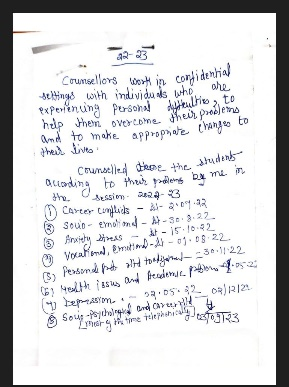 22-23
Counsellors work in confidential
settings with individuals who are
experiencing personal difficulties, to
help them overcome their problems
and to make appropriate changes to
their lives.
Counselled the students
according to their problems by me in
the session. 2022-23
① Career conflicts - dt - 2.07.22
② Socio - emotional - dt - 30.8.22
③ Anxiety stress - dt - 15.10.22
④ Vocational, Emotional - dt - 01.08.22
⑤ Personal - 30.11.22
(6) Health issues and Academic
(7) Depression. - 02.05.22 02/12/22
⑧ Socio-psychological and career
[Mostly the time telephonically]